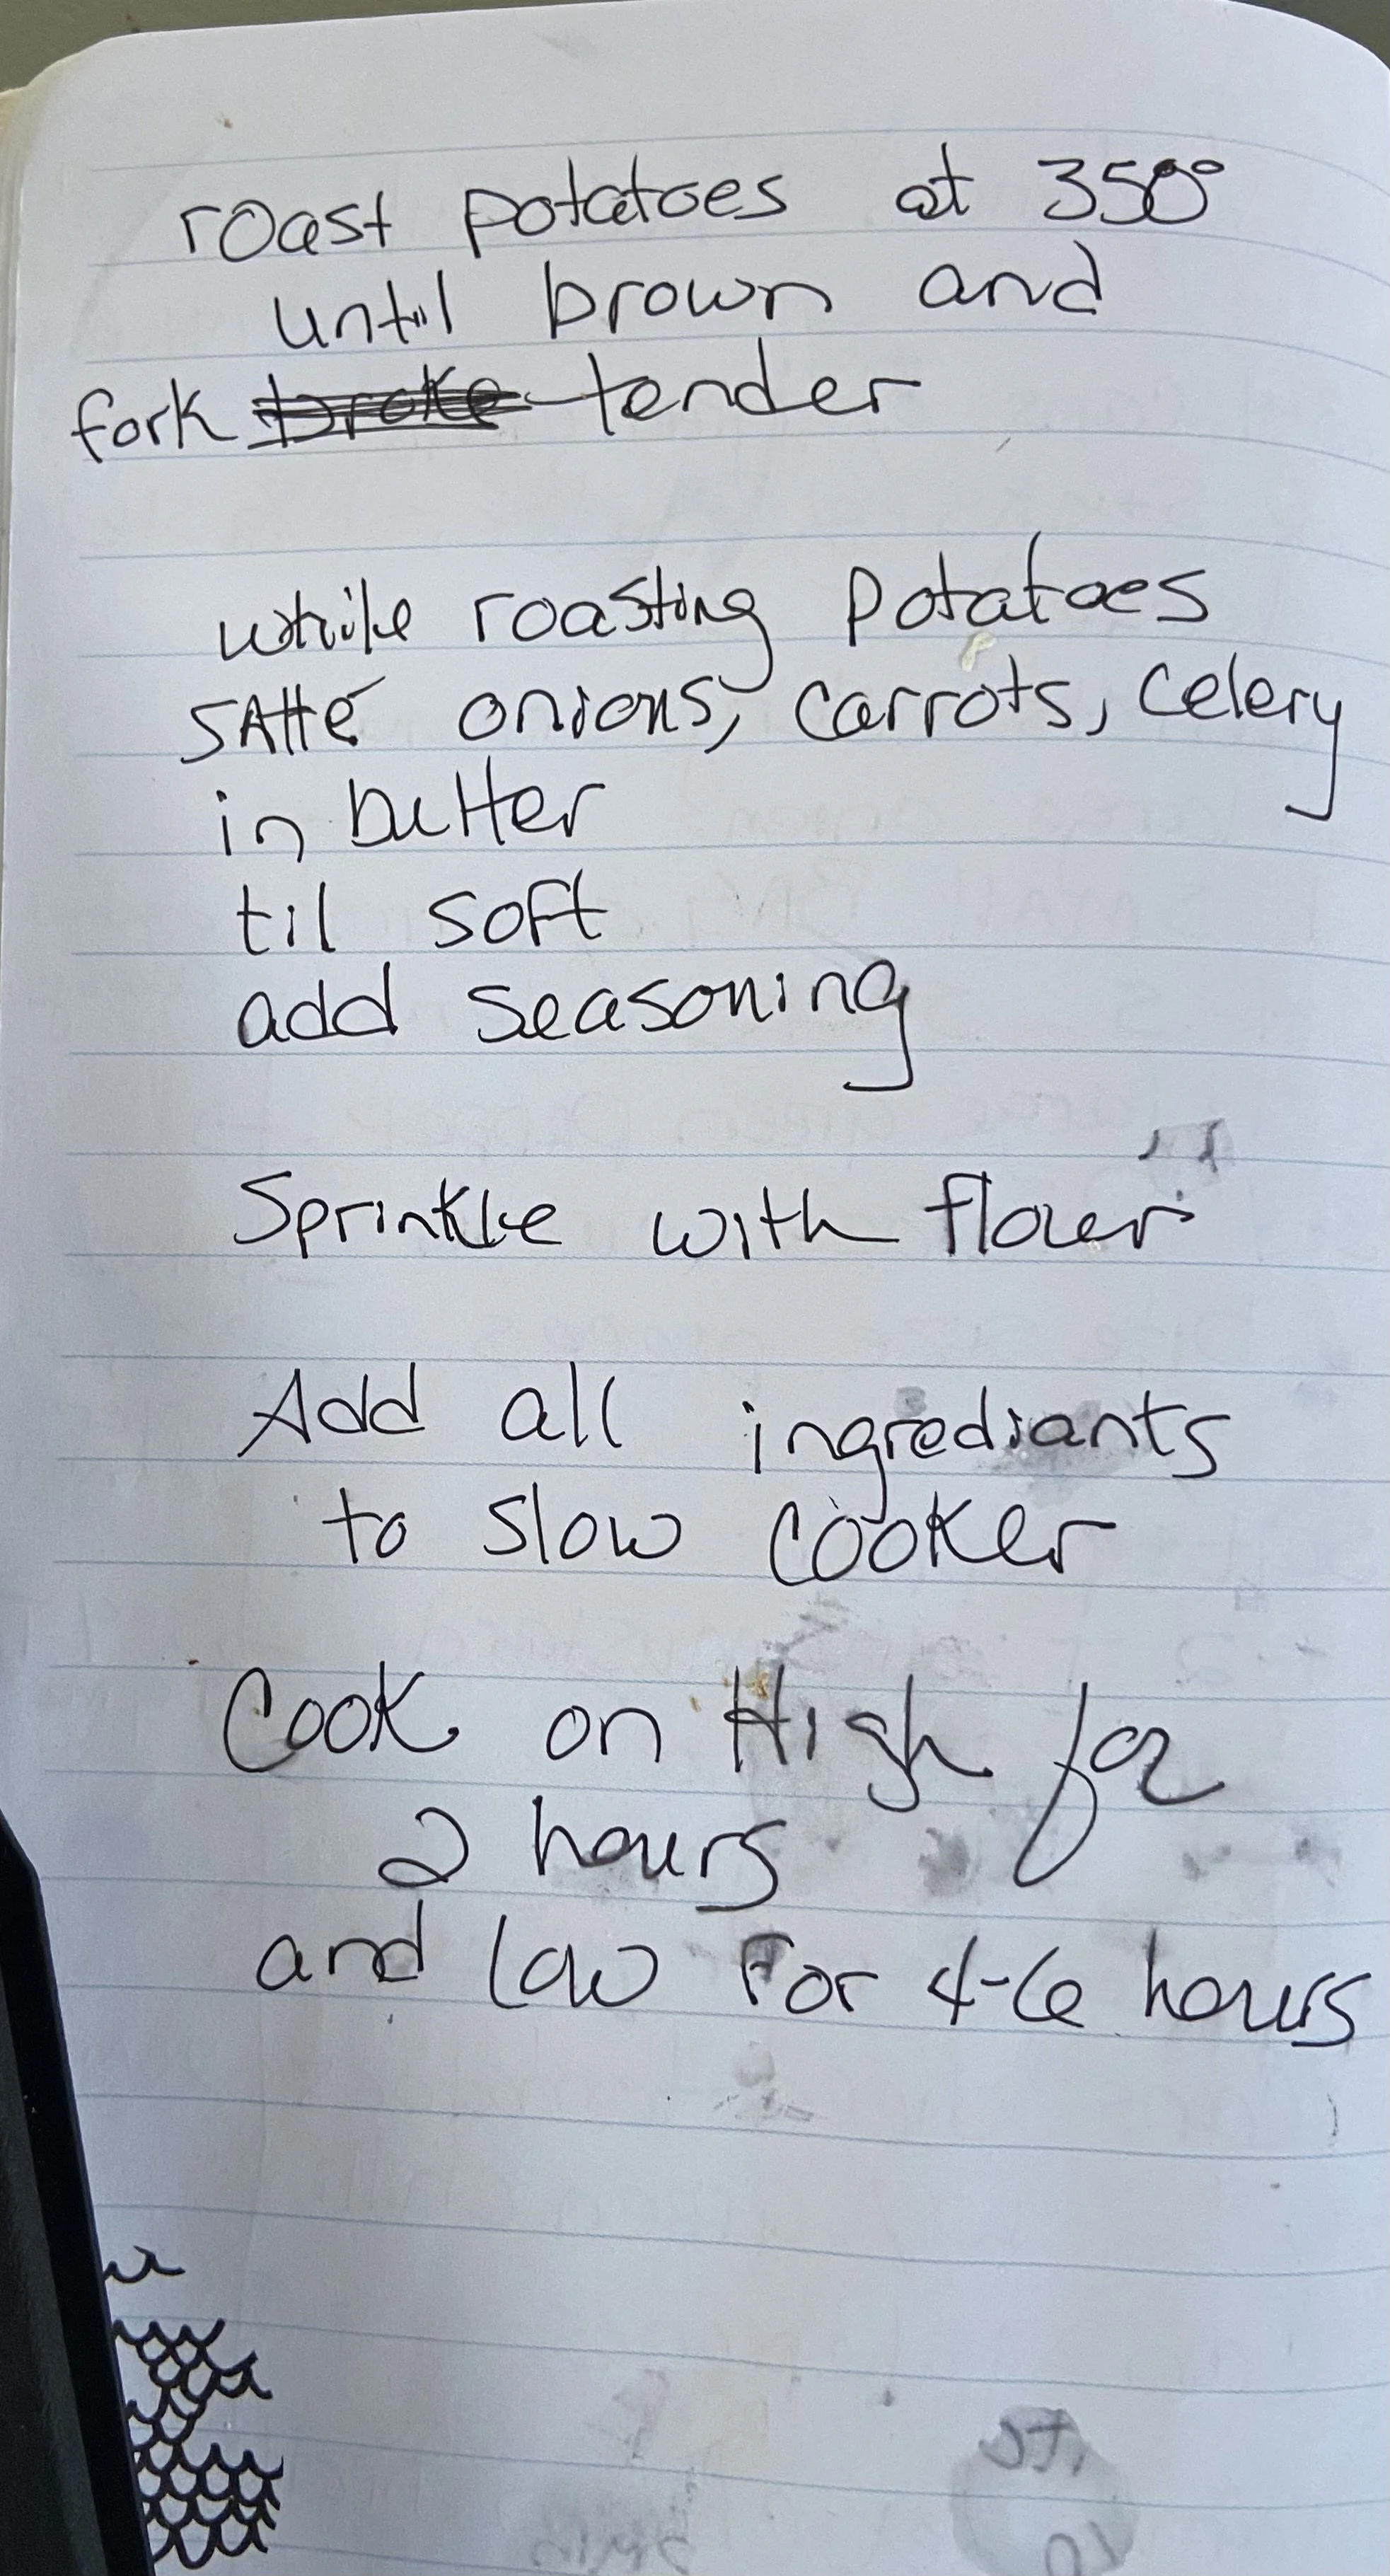 roast potatoes at 350°
until brown and
fork tender
while roasting potatoes
SAtté onions, carrots, celery
in butter
til soft
add seasoning
Sprinkle with flour
Add all ingrediants
to slow cooker
Cook on High for
2 hours
and low For 4-6 hours